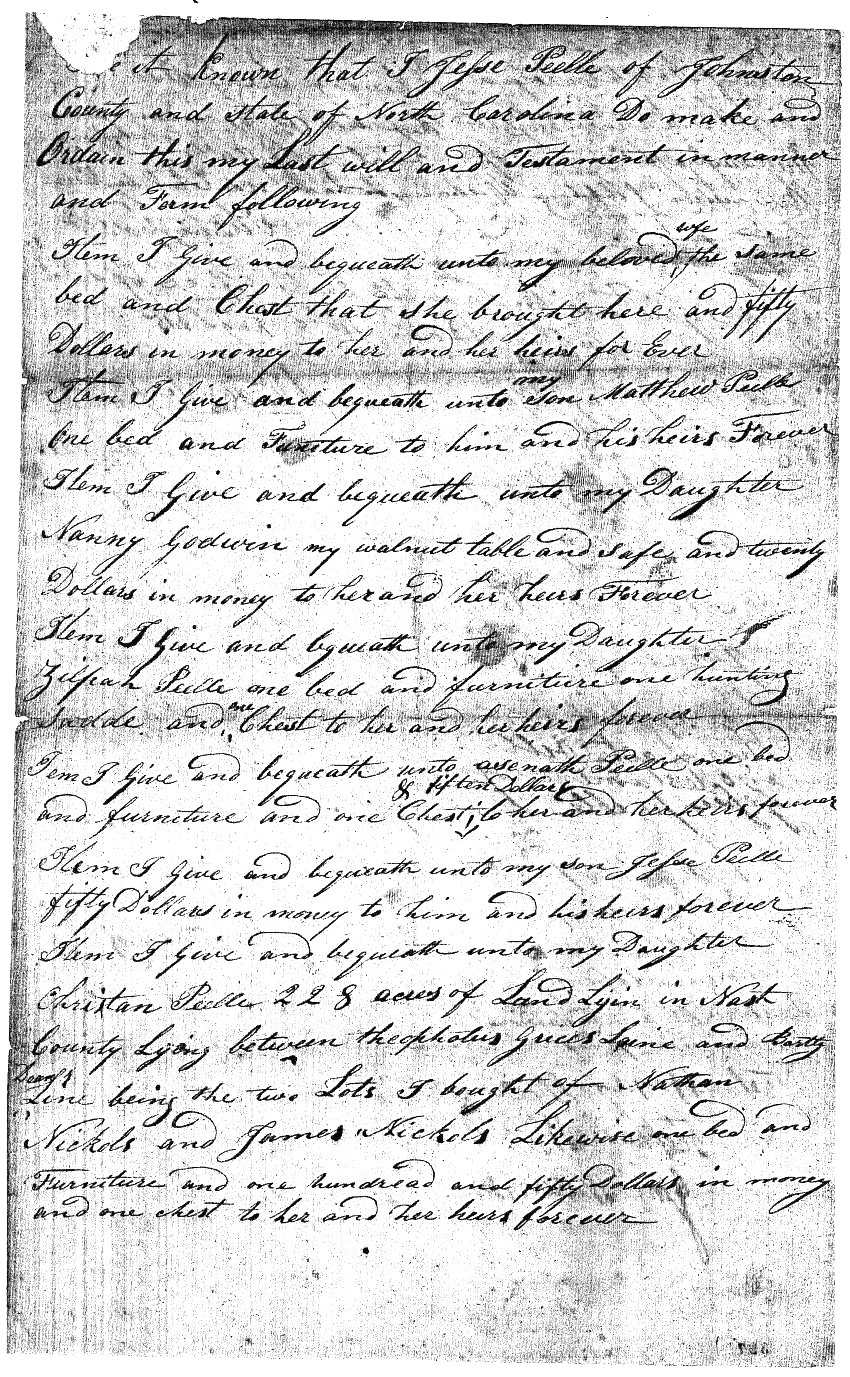 it known that I Jesse Peelle of Johnston
County and state of North Carolina Do make and
Ordain this my Last will and Testament in manner
and Form following
wife
Item I Give and bequeath unto my beloved the same
bed and Chest that she brought here and fifty
Dollars in money to her and her heirs for Ever
my
Item I Give and bequeath unto son Matthew Peelle
One bed and Funiture to him and his heirs Forever
Item I Give and bequeath unto my Daughter
Nanny Godwin my walnut table and safe and twenty
Dollars in money to her and her heirs Forever
Item I Give and bqueath unto my Daughter
Zilpah Peelle one bed and furniture one hunting
one
Sadde and Chest to her and her heirs forever
Tem I Give and bequeath unto asenath Peelle one bed
& fiften Dollars
and furniture and one Chest to her and her heirs forever
Item I Give and bequeath unto my son Jesse Peelle
fifty Dollars in money to him and his heirs forever
Item I Give and bequeath unto my Daughter
Christan Peelle 228 acres of Land Lyin in Nash
County Lying between theopholus Line and
Line being the two Lots I bought of Nathan
Nickols and James Nickols Likewise one bed and
Furniture and one hundread and fifty Dollars in money
and one chest to her and her heirs forever